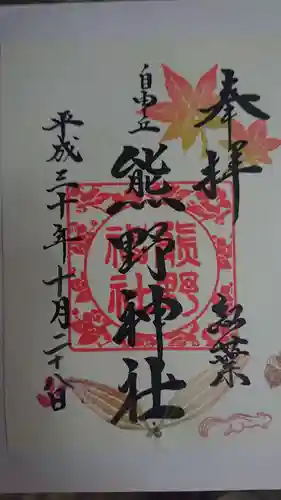 奉拝
紅葉
自由丘
熊野神社
熊野
神社
平成三十年十月二十八日